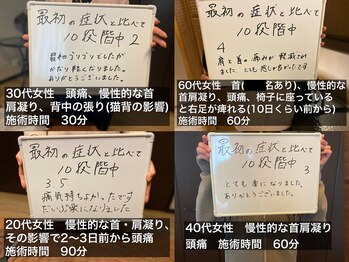 最初の症状と比べて
10段階中 2
最初ゴリゴリでしたが
かなり軽くなりました。
ありがとうございました。
30代女性 慢性的な首
肩凝り、背中の張り(猫背の影響)
施術時間 30分
最初の症状と比べて
10段階中
4
肩と首の痛みが軽減され
ました。とても
60代女性 首( 名あり)、慢性的な
首肩凝り、頭痛、椅子に座っている
と右足が痺れる(10日くらい前から)
施術時間 60分
最初の症状と比べて
10段階中
3.5
病気持ちょが、たです
だいぶ楽になりました
20代女性 慢性的な首・肩凝り、
その影響で2〜3日前から頭痛
施術時間 90分
最初の症状と比べて
10段階中
3
とても楽になりました。
ありがとうございました。
40代女性 慢性的な首肩凝り
頭痛 施術時間 60分